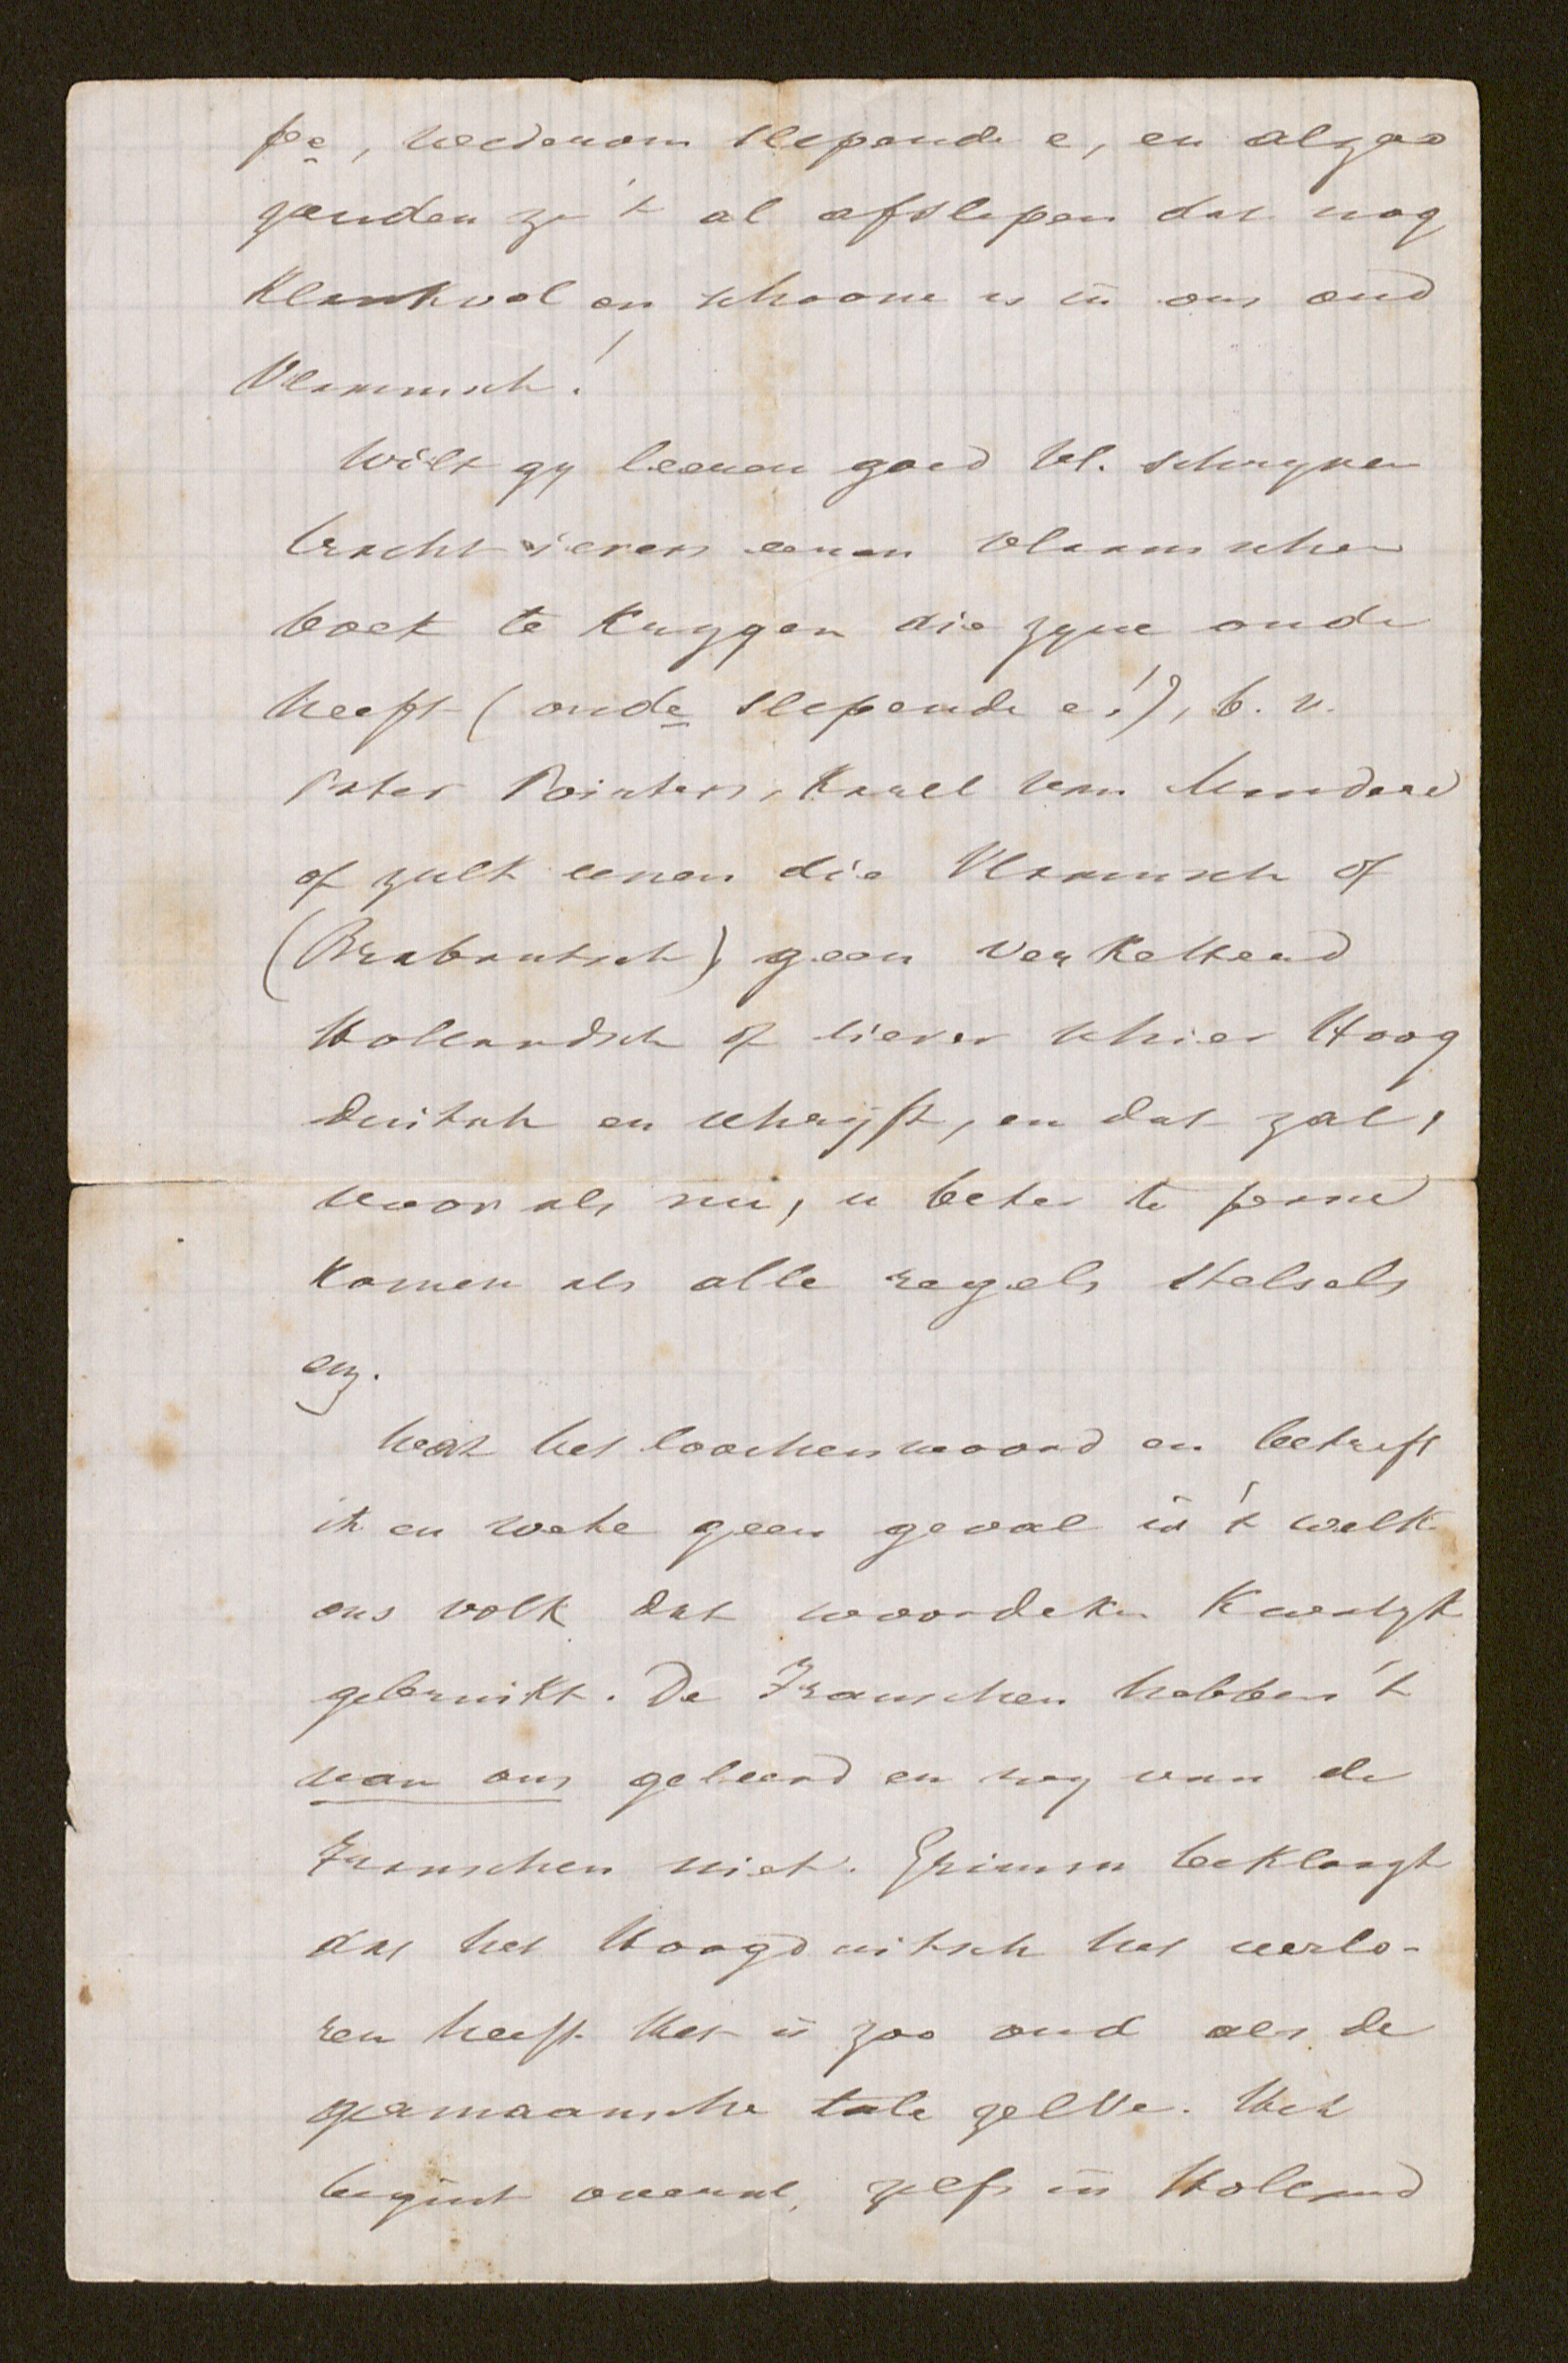 pe, wederom slepende e, en alzoo
zouden ze 't al afslepen dat nog
klankvol en schoone is in ons oud
Vlaamsch!
Wilt gy leeren goed Vl. schryven
tracht ievers eenen vlaamschen
boek te krygen die zyne oude
heeft (oude slepende e!), b. v.
Pater Poirters, Karel van Mandere
of zulk eenen die Vlaamsch of
(Brabantsch) geen verkeltend
Hollandsch of liever schier Hoog
duitsch en schryft, en dat zal,
voor als nu, u beter te passe
komen als alle regels stelsels
enz.
Wat het loochenwoord en betreft
ik en wete geen geval in 't welk
ons volk dat woordeken kwalyk
gebruikt. De Franschen hebben 't
van ons geleerd en wy van de
Franschen niet. Grimm beklaagt
dat het Hoogduitsch het verlo-
ren heeft. Het is zoo oud als de
germaansche tale zelve. Het
begint overal, zelfs in Holland